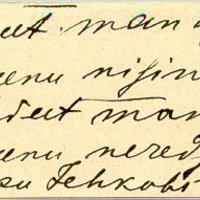 eut man
enu nisin
deut man
enu nered
su Jehkabi